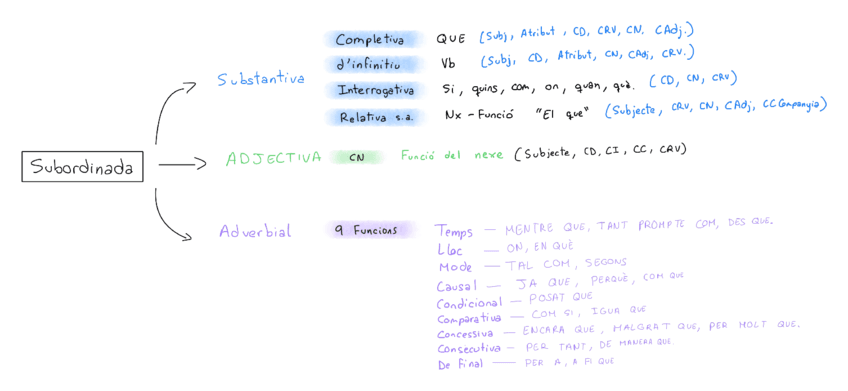 Completiva QUE (Subj, Atribut, CD, CRV, CN, CAdj.)
d'infinitiu Vb (Subj, CD, Atribut, CN, CAdj, CRV.)
Substantiva
Interrogativa Si, quins, com, on, quan, què. (CD, CN, CRV)
Relativa s.a. Nx - Funció "El que" (Subjecte, CRV, CN, CAdj, CC Companyia)
Subordinada
ADJECTIVA CN Funció del nexe (Subjecte, CD, CI, CC, CRV)
Adverbial 9 Funcions Temps — MENTRE QUE, TANT PROMPTE COM, DES QUE.
Lloc — ON, EN QUÈ
Mode — TAL COM, SEGONS
Causal — JA QUE, PERQUÈ, COM QUE
Condicional — POSAT QUE
Comparativa — COM SI, IGUA QUE
Concessiva — ENCARA QUE, MALGRAT QUE, PER MOLT QUE.
Consecutiva — PER TANT, DE MANERA QUE
De Final — PER A, A FI QUE